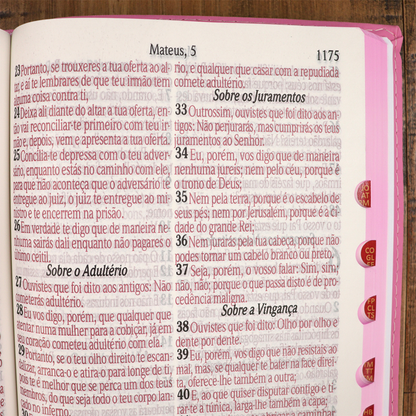 Mateus, 5
1175
23 Portanto, se trouxeres a tua oferta ao al-
tar, e aí te lembrares de que teu irmão tem
alguma coisa contra ti,
24 Deixa ali diante do altar a tua oferta, e
vai reconciliar-te primeiro com teu ir-
mão e, depois, vem e apresenta a tua oferta.
25 Concilia-te depressa com o teu adver-
sário, enquanto estás no caminho com ele,
para que não aconteça que o adversário te
entregue ao juiz, o juiz te entregue ao mi-
nistro e te encerrem na prisão.
26 Em verdade te digo que de maneira ne-
nhuma sairás dali enquanto não pagares o
último ceitil.
Sobre o Adultério
27 Ouvistes que foi dito aos antigos: Não
cometerás adultério.
28 Eu vos digo, porém, que qualquer que
atentar numa mulher para a cobiçar, já em
seu coração cometeu adultério com ela.
29 Portanto, se o teu olho direito te escan-
dalizar, arranca-o e atira-o para longe de ti,
pois te é melhor que se perca um dos teus
membros, do que seja todo o teu corpo lan-
no inferno.
rio, e qualquer que casar com a repudiada
comete adultério.
Sobre os Juramentos
33 Outrossim, ouvistes que foi dito aos an-
tigos: Não perjurarás, mas cumprirás os teus
juramentos ao Senhor.
34 Eu, porém, vos digo que de maneira
nenhuma jureis; nem pelo céu, porque é
o trono de Deus;
35 Nem pela terra, porque é o escabelo de
seus pés; nem por Jerusalém, porque é a ci-
dade do grande Rei;
36 Nem jurarás pela tua cabeça, porque não
podes tornar um cabelo branco ou preto.
37 Seja, porém, o vosso falar: Sim, sim;
não, não; porque o que passa disto é de pro-
cedência maligna.
Sobre a Vingança
38 Ouvistes que foi dito: Olho por olho e
dente por dente.
39 Eu, porém, vos digo que não resistais ao
mal, mas, se qualquer te bater na face direi-
ta, oferece-lhe também a outra;
40 E, ao que quiser disputar contigo e ti-
rar-te a túnica, larga-lhe também a capa;